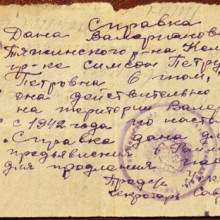 Справка
Дана Валериановс
Тяжинского р-на Кем
гр-ке симсон Петру
Петровна в том,
она действительно
на територии Вале
с 1942 года по наст
Справка дана дл
предъявления в
для продления
Предс/
Секретарь